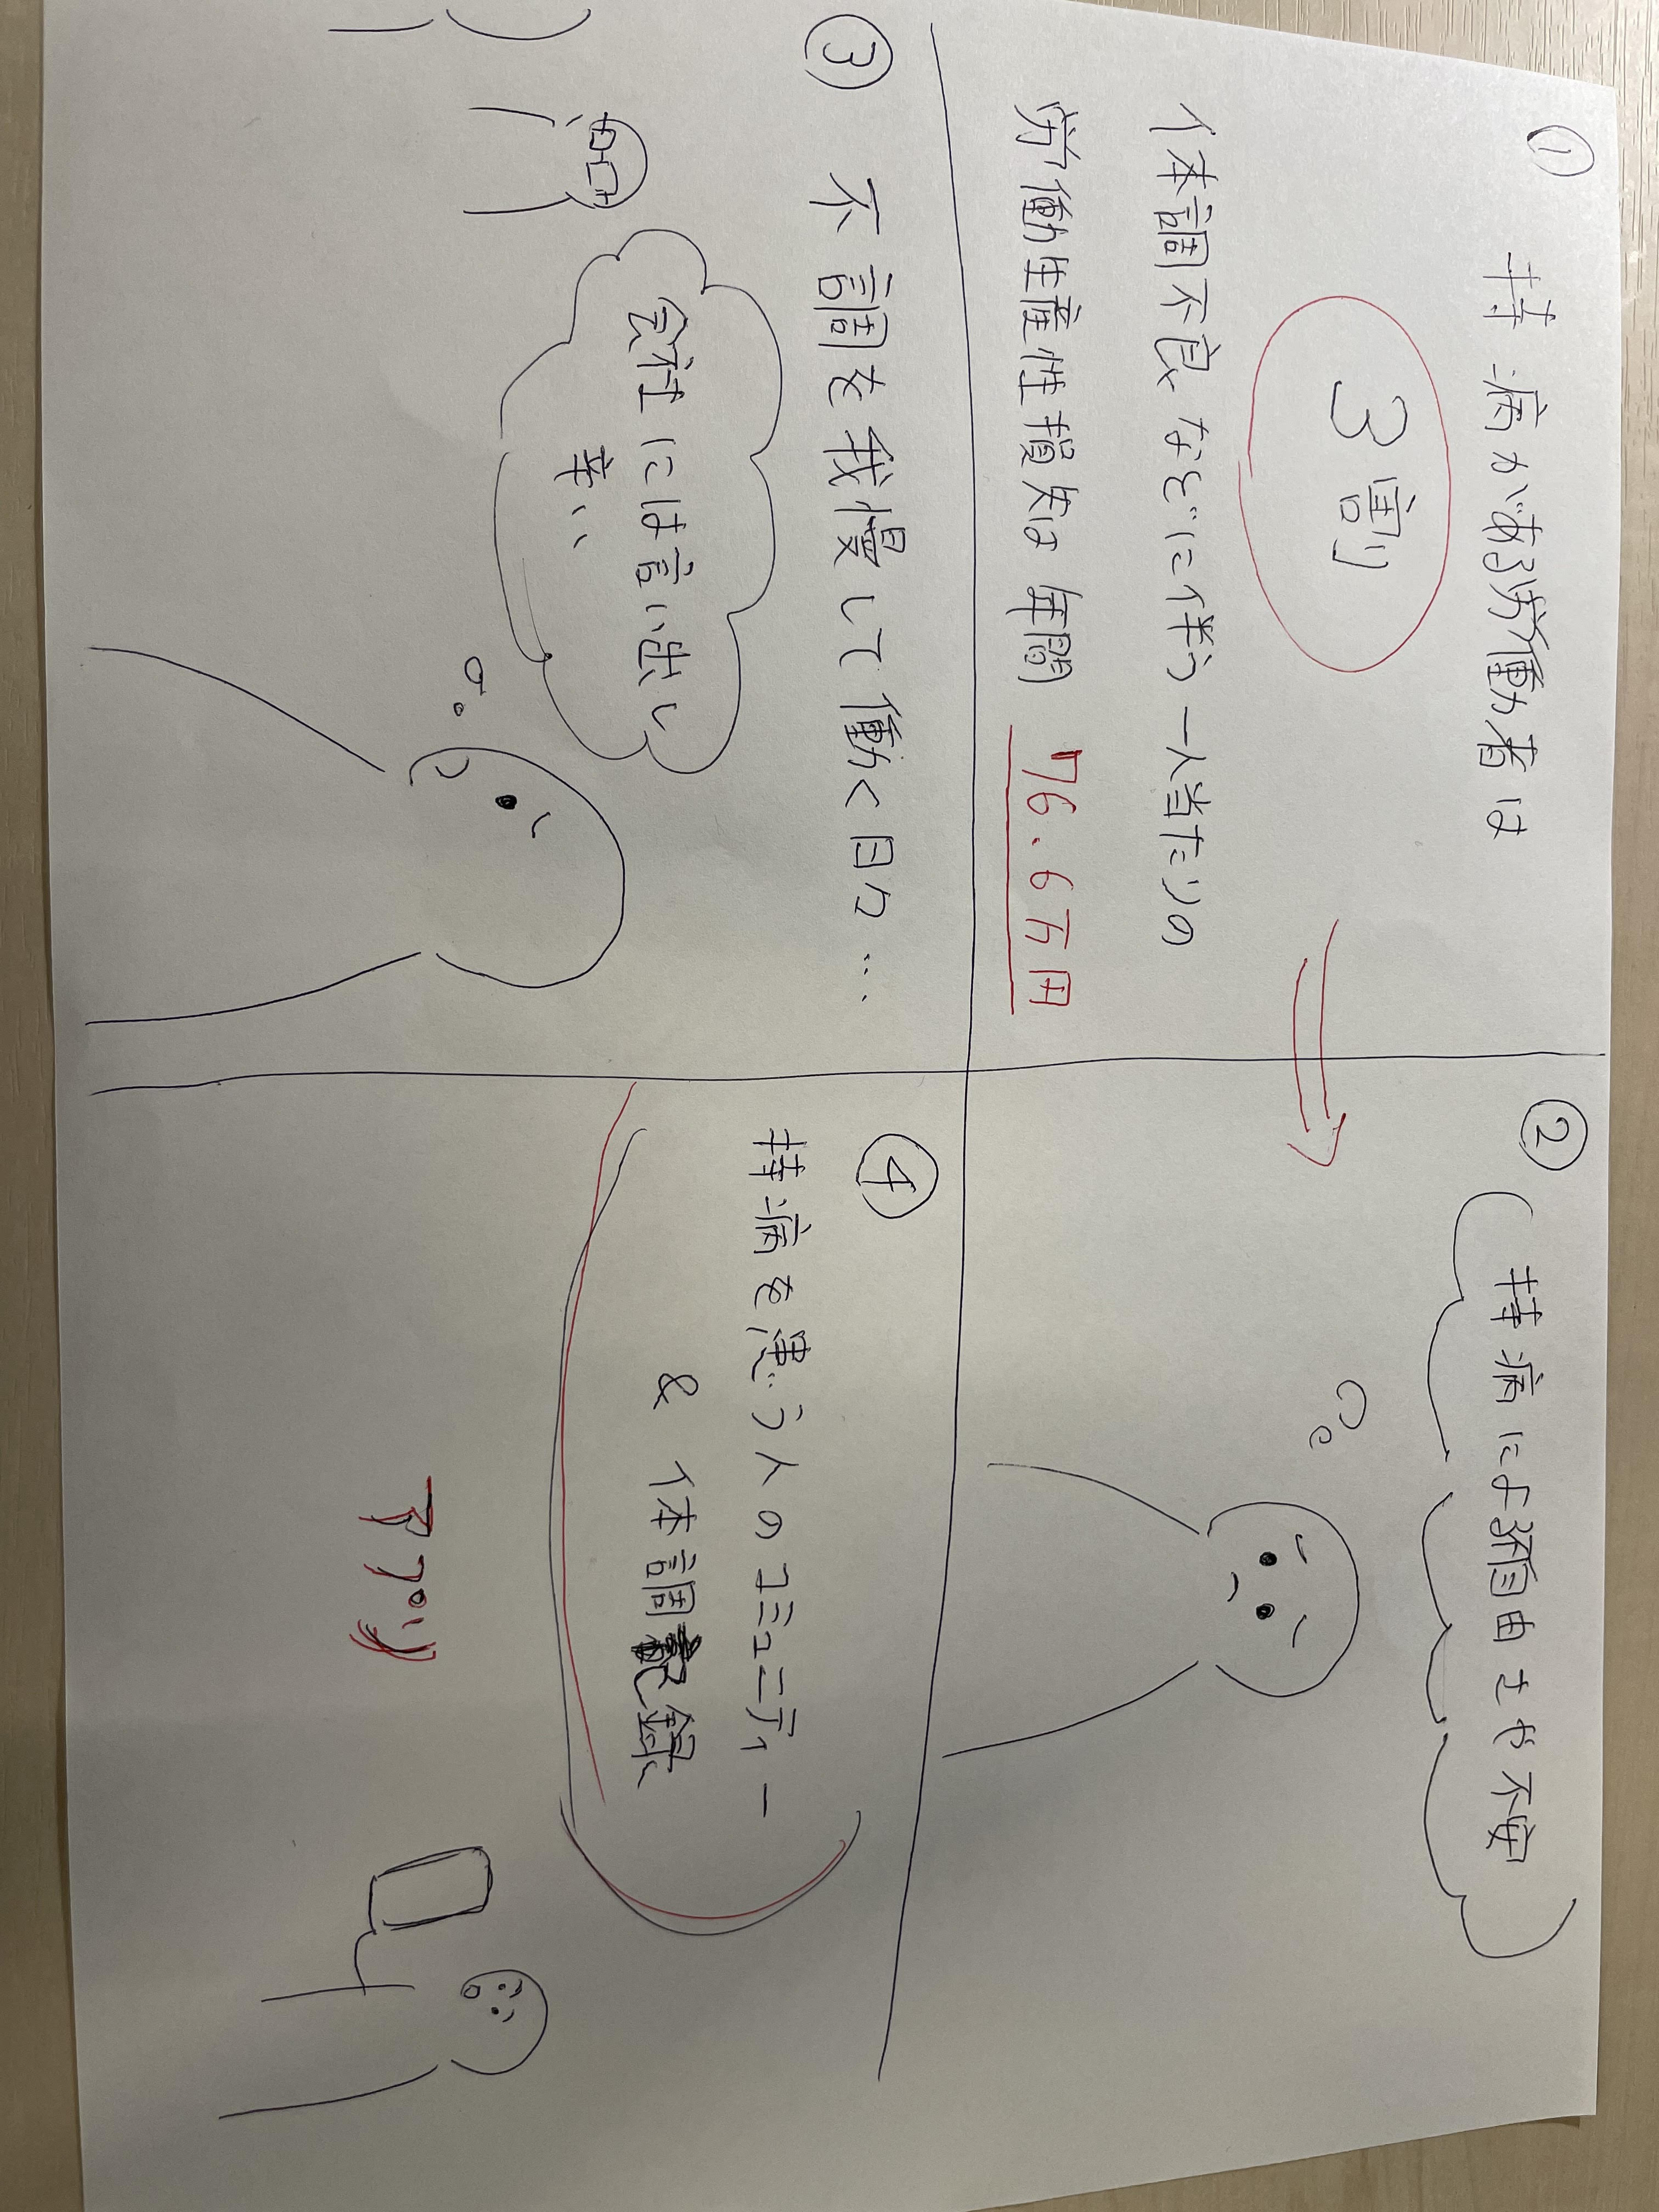 ①
持病がある労働者は
3割
体調不良などに伴う一人当たりの
労働生産性損失は年間 76.6万円
②
持病による不自由さや不安
③ 不調を我慢して働く日々…
会社には言い出し
辛い
④
持病を患う人のコミュニティー
& 体調記録
アプリ